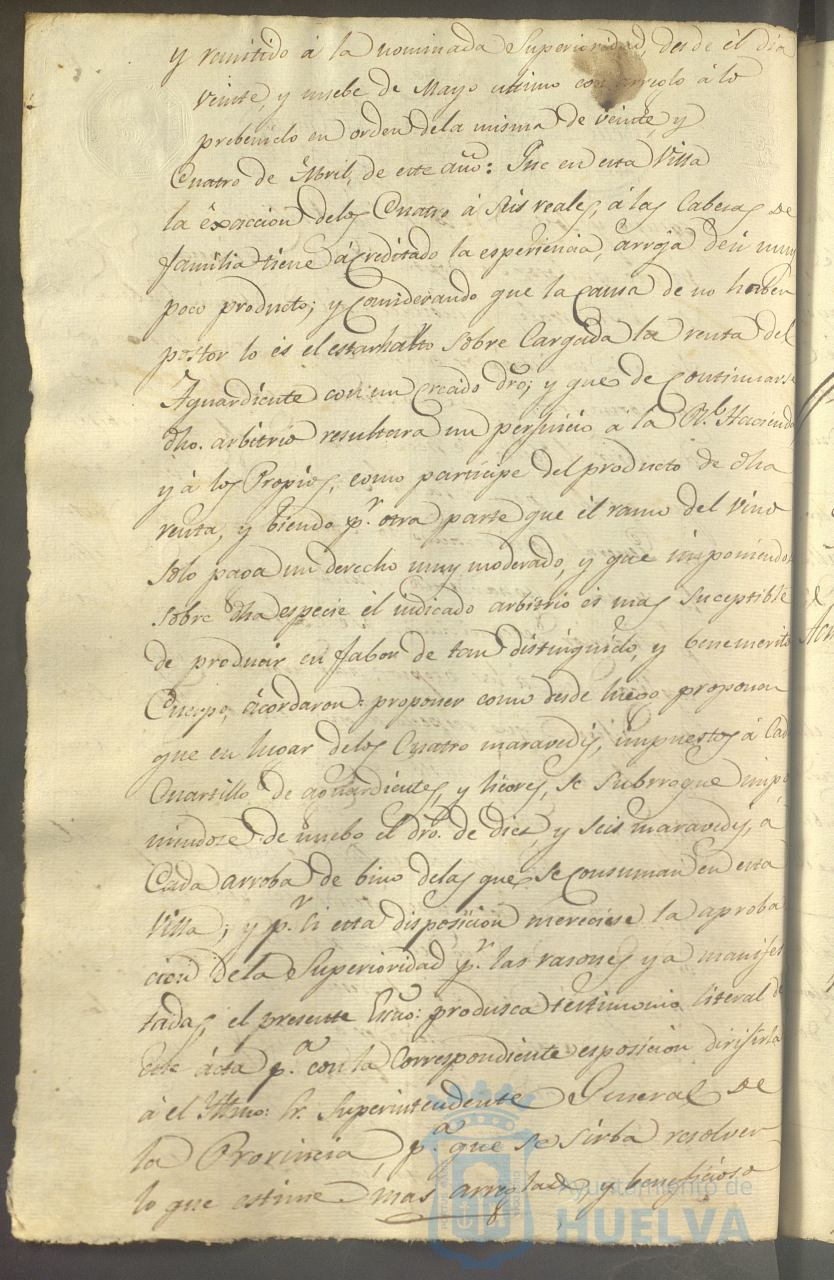 y remitido à la nominada Superioridad, desde él dia
veinte, y nuebe de Mayo ultimo con arreglo à lo
prebenido en orden dela misma de veinte, y
Cuatro de Abril, de este año: Que en esta Villa
la éxaccion delos Cuatro à seis reales, à las Cabesas de
familia tiene ácreditado la esperiencia, arroja de si muy
poco producto; y Considerando que la Causa de no haber
postor lo és el estar harto sobre Cargada la renta del
Aguardiente con un Crecido dro; y que de Continuarse
dho. arbitrio resultara un perjuicio a la Rl. Hacienda
y à los Propios, como participe del producto de dha
renta, y biendo pr. otra parte que él ramo del vino
solo paga un derecho muy moderado, y que imponiendo
sobre dha especie él indicado arbitrio és mas suceptible
de producir en fabor de tan distinguido, y benemerito
Cuerpo, ácordaron: proponer como desde luego proponen
que en lugar delos Cuatro maravedis, impuestos à Cada
Cuartillo de aguardientes, y licores, se subrrogue impo
niendose de nuebo el dro. de diez, y seis maravedis, à
Cada arroba de bino delas que se Consuman en esta
Villa; y pr. si esta disposicion mereciese la aproba
cion dela Superioridad pr. las rasones ya manifes
tadas, el presente Esno: produsca testimonio literal de
este ácta pa. con la Correspondiente esposicion dirijirla
à el Yltmo: Sr. Superintendente General de
la Provincia, pa. que se sirba resolver
lo que estime mas arreglado, y beneficioso
Ayuntamiento de
HUELVA